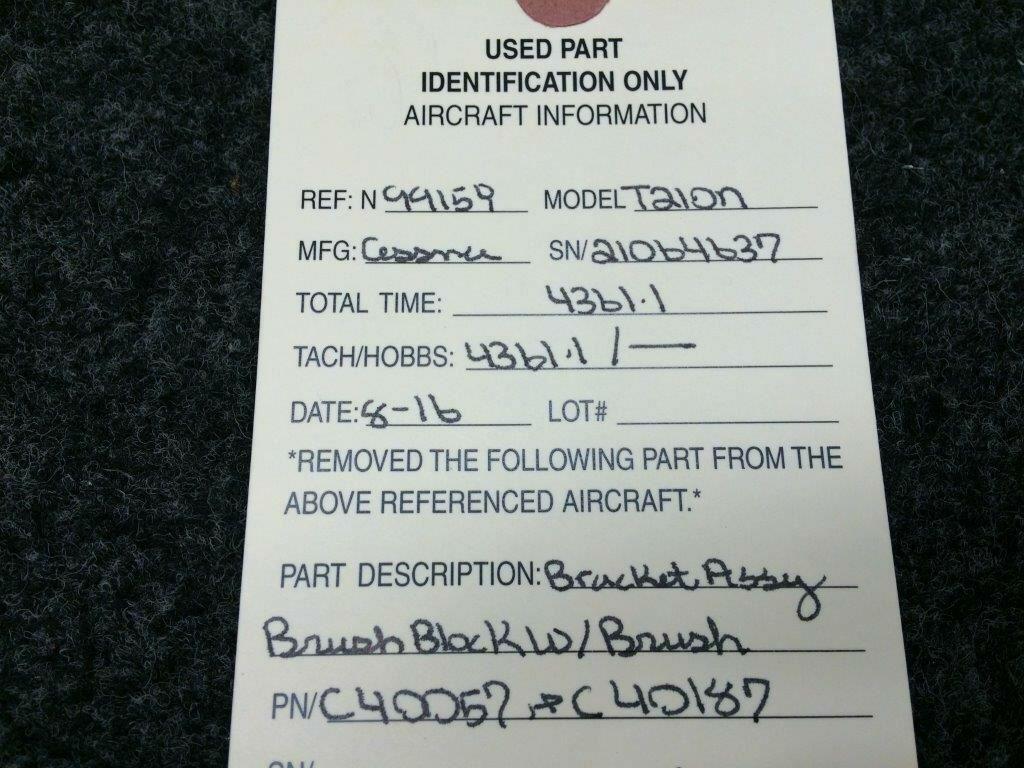 USED PART
IDENTIFICATION ONLY
AIRCRAFT INFORMATION
REF: N 99159 MODEL T210N
MFG: Cessna SN/ 21064637
TOTAL TIME: 4361.1
TACH/HOBBS: 4361.1 / —
DATE: 8-16 LOT#
*REMOVED THE FOLLOWING PART FROM THE
ABOVE REFERENCED AIRCRAFT.*
PART DESCRIPTION: Bracket Assy
Brush Block W/ Brush
PN/ C40057 + C40187
SN/